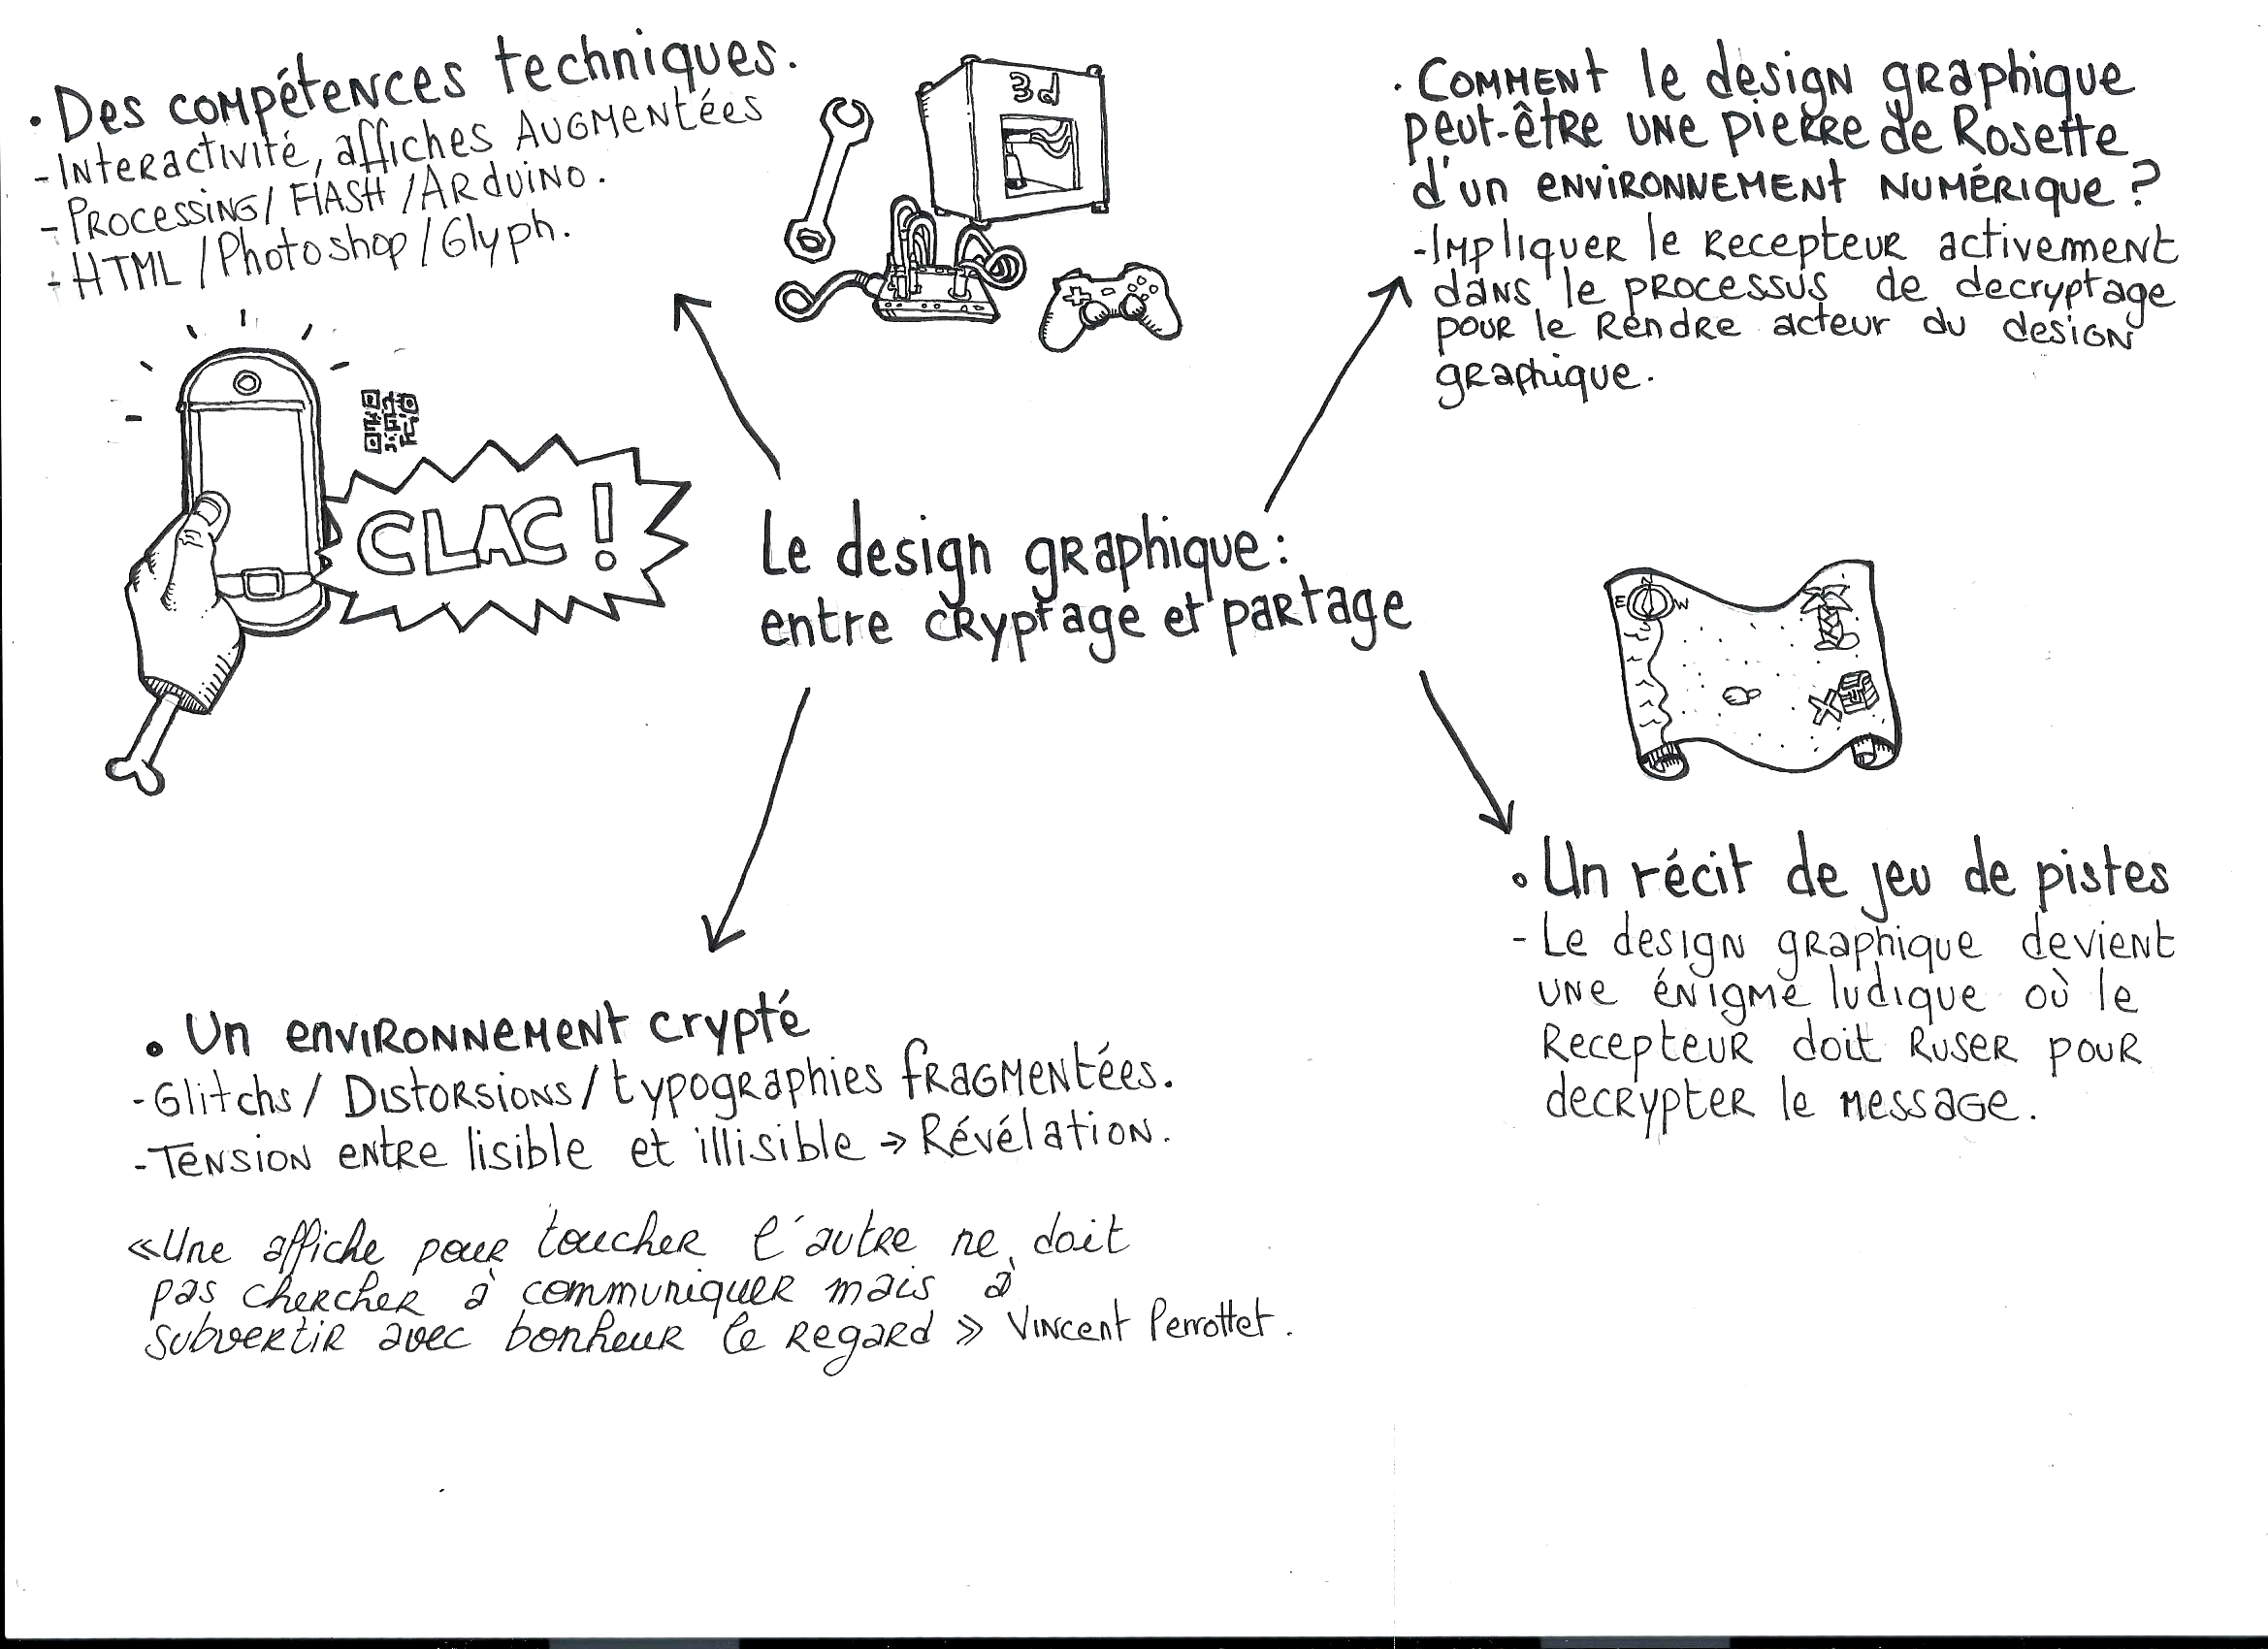 . Des compétences techniques.
- Interactivité, affiches augmentées
- Processing / Flash / Arduino.
- HTML / Photoshop / Glyph.
3d
CLAC !
. Comment le design graphique
peut-être une pierre de Rosette
d'un environnement numérique ?
- Impliquer le recepteur activement
dans le processus de decryptage
pour le rendre acteur du design
graphique.
Le design graphique :
entre cryptage et partage
N
E W
. Un récit de jeu de pistes
- Le design graphique devient
une énigme ludique où le
recepteur doit ruser pour
decrypter le message.
. Un environnement crypté
- Glitchs / Distorsions / typographies fragmentées.
- Tension entre lisible et illisible → Révélation.
« Une affiche pour toucher l'autre ne doit
pas chercher à communiquer mais à
subvertir avec bonheur le regard » Vincent Perrottet.